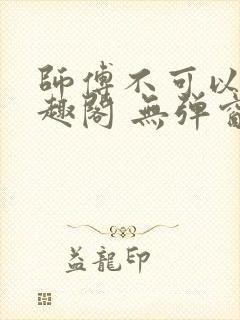 師傅不可以
趣閣 無弹窗
益龍印